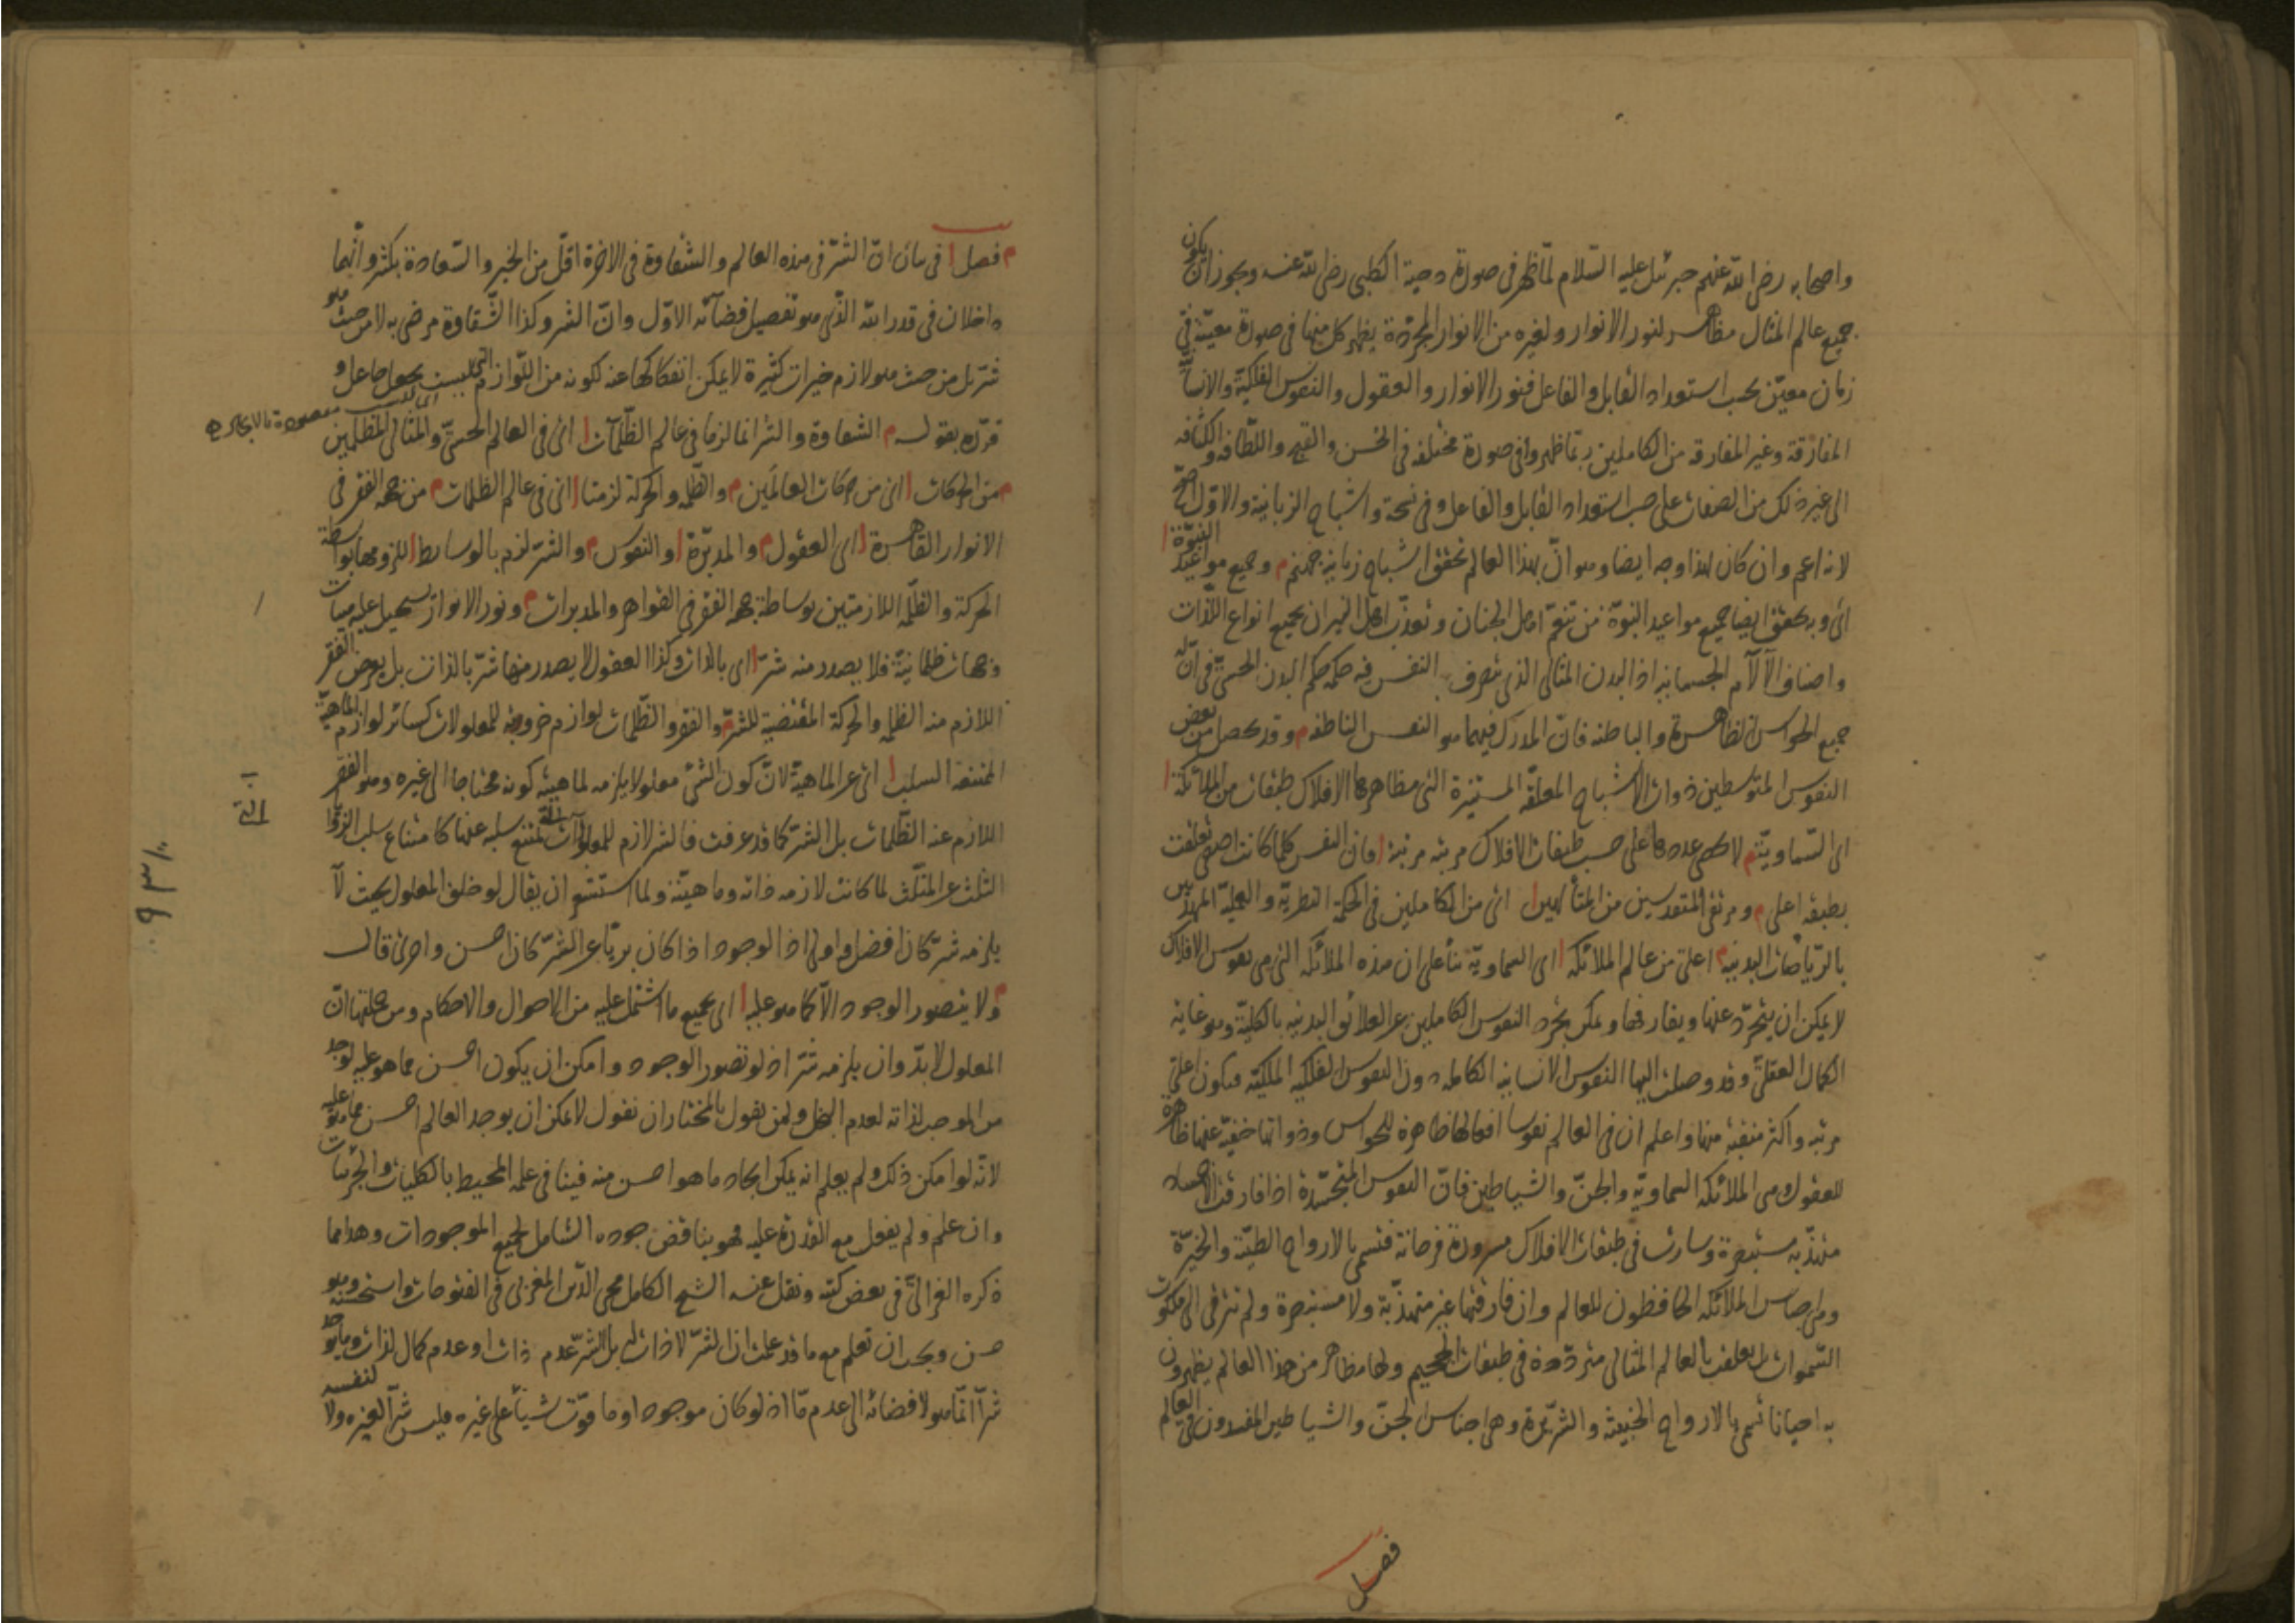 واصحابه رضى الله عنهم جبرئيل عليه السّلام لمّا ظهر فى صورة دحية الكلبى رضى الله عنه ويجوز ان يكون
جميع عالم المثال مظاهر لنور الانوار ولغيره من الانوار المجرّدة يظهر كل منها فى صورة معيّنة فى
زمان معيّن بحسب استعداد القابل والفاعل فنور الانوار والعقول والنفوس الفلكيّة والانسا
المفارقة وغير المفارقة من الكاملين ربّما ظهروا فى صورة مختلفة فى الحسن والقبح واللّطافة والكثافه
الى غير ذلك من الصفات على حسب استعداد القابل والفاعل وفى نسخة واشباح الزبانية والاوّل اصحّ
لانه اعم وان كان لهذا وجه ايضا وهو انّ بهذا العالم تحقق اشباح زبانية جهنم م وجميع مواعيد النبوّة
اى وبه تحقق ايضا جميع مواعيد النبوّة من تنعّم اهل الجنان وتعذّب اهل النيران بجميع انواع اللّذات
واصناف الآلام الجسمانيه اذ البدن المثالى الذى يتصرف النفس فيه حكمه حكم البدن الحسّى فى انّ له
جميع الحواس الظاهرة والباطنه فانّ المدرك فيهما هو النفس الناطقه م وقد يحصل من بعض
النفوس المتوسطين ذوات الاشباح المعلّقه المستنيرة التى مظاهرها الافلاك طبقات من الملائكة
اى السّماويّة م لا يحصى عددها على حسب طبقات الافلاك مرتبه مرتبة فان النفس كلّما كانت اصفى تعلقت
بطبقه اعلى م ومرتقى المتقدسين من المتألهين اى من الكاملين فى الحكمة النظريّة والعمليّة المهذّبين
بالرّياضات البدنية م اعلى من عالم الملائكه اى السماوية بناء على ان هذه الملائكه التى هى نفوس الافلاك
لا يمكن ان يتجرّد عنها ويفارقها ويمكن تجرّد النفوس الكاملين عن العلائق البدنيه بالكليّة وهو غاية
الكمال العقلى وقد وصلت اليها النفوس الانسانيه الكامله دون النفوس الفلكيه الملكيّه فيكون اعلى
مرتبه واكثر منقبة منها واعلم ان فى العالم نفوسا افعالها ظاهرة للحواس وذواتها خفيّة عنها ظاهرة
للعقول وهى الملائكه السماويّه والجنّ والشياطين فانّ النفوس المتجسّدة اذا فارقت الاجساد
مهذّبه مستبصرة وسارت فى طبقات الافلاك مسرورة فرحانة فتسمى بالارواح الطيّبة والخيّرة
وهى اجناس الملائكه الحافظون للعالم وان فارقتها غير متهذّبة ولا مستبصرة ولم ترقى الى ملكوت
السّموات بل تعلقت بالعالم المثالى متردّدة فى طبقات الجحيم ولها مظاهر من هذا العالم يظهرون
به احيانا تسمى بالارواح الخبيثة والشرّيرة وهى اجناس الجنّ والشياطين المفسدون فى العالم
فصل
م فصل فى بيان انّ الشرّ فى هذه العالم والشقاوة فى الاخرة اقلّ من الخير والسّعادة بكثير وانّهما
داخلان فى قدر الله الذّى هو تفصيل قضائه الاوّل وانّ الشر وكذا الشّقاوة مرضى به لا من حيث هو
شرّ بل من حيث هو لازم خيرات كثيرة لا يمكن انفكاكها عنه لكونه من اللّوازم التى ليست بجعل جاعل و
قرّره بقوله م الشقاوة والشر انما لزما فى عالم الظّلمات اى فى العالم الحسّى والمثالى المظلمين
م من الحركات اى من حركات العالمين م والظّلمه والحركة لزمتا اى فى عالم الظلمات م من جهه الفقر فى
الانوار القاهرة اى العقول م والمدبّرة والنفوس م والشرّ لزم بالوسايط للزومها بواسطه
الحركة والظّلمه اللازمتين بوساطة جهه الفقر فى القواهر والمدبرات م ونور الانوار يستحيل عليه هيئات
وجهات ظلمانيّة فلا يصدر منه شرّ اى بالذات وكذا العقول لا يصدر منها شرّ بالذات بل بعرض الفقر
اللازم منه الظلمه والحركة المقتضية للشرّ م والفقر والظّلمات لوازم ضرورية للمعلولات كسائر لوازم الماهيّة
الممتنعة السلب اى عن الماهيّة لانّ كون الشئ معلولا يلزمه لماهيته كونه محتاجا الى غيره وهو الفقر
اللازم عنه الظّلمات بل الشرّ كما قد عرفت فالشر لازم للمعلولات يمتنع سلبه عنها كامتناع سلب الزوايا
الثلث عن المثلّث لما كانت لازمه ذاته وماهيّته ولما استشعر ان يقال لو خلق المعلول بحيث لا
يلزمه شرّ كان افضل واولى اذ الوجود اذا كان بريّا عن الشرّ كان احسن واحرى قال
م ولا يتصور الوجود الّا كما هو عليه اى بجميع ما اشتمل عليه من الاحوال والاحكام ومن جملتها انّ
المعلول لابدّ وان يلزمه شرّ اذ لو تصور الوجود وامكن ان يكون احسن مما هو عليه لوجد
من الموجب لذاته لعدم البخل ولمن يقول بالمختار ان نقول لا يمكن ان يوجد العالم احسن مما هو عليه
لانّه لو امكن ذلك ولم يعلم انه يمكن ايجاد ما هو احسن منه فينافى علمه المحيط بالكليات والجزئيات
وان علم ولم يفعل مع القدرة عليه فهو يناقض جوده الشامل لجميع الموجودات وهذا ما
ذكره الغزالىّ فى بعض كتبه ونقل عنه الشيخ الكامل محى الدّين المغربى فى الفتوحات واستحسنه وهو
حسن ويجب ان تعلم مع ما قد علمت ان الشرّ لا ذات له بل الشرّ عدم ذات او عدم كمال لذات وما يوجد
شرّا انّما هو لافضائه الى عدم مّا اذ لو كان موجودا وما فوّت شيئا على غيره فليس شرّا لغيره ولا لنفسه